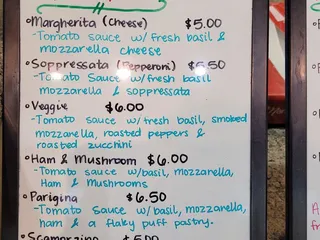 •Margherita (cheese) $5.00
-Tomato sauce w/fresh basil &
mozzarella cheese
•Soppressata (Pepperoni) $6.50
-Tomato Sauce w/fresh basil
mozzarella & soppressata
•Veggie $6.00
-Tomato sauce w/fresh basil, smoked
mozzarella, roasted peppers &
roasted zucchini
•Ham & Mushroom $6.00
-Tomato sauce w/basil, mozzarella,
Ham & Mushrooms
•Parigina $6.50
-Tomato sauce w/basil, mozzarella,
ham & a flaky puff pastry.
•Scamorzino $5.00